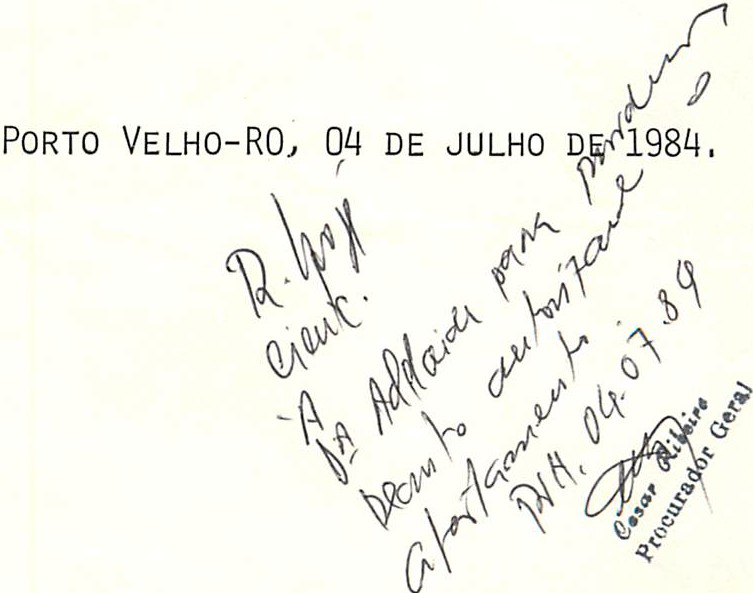 PORTO VELHO-RO, 04 DE JULHO DE 1984.
R. hoje
ciente.
À
Dª Adelaide para providenciar o
Decreto autorizando
afastamento.
PVH. 04.07.84
Cesar Ribeiro
Procurador Geral